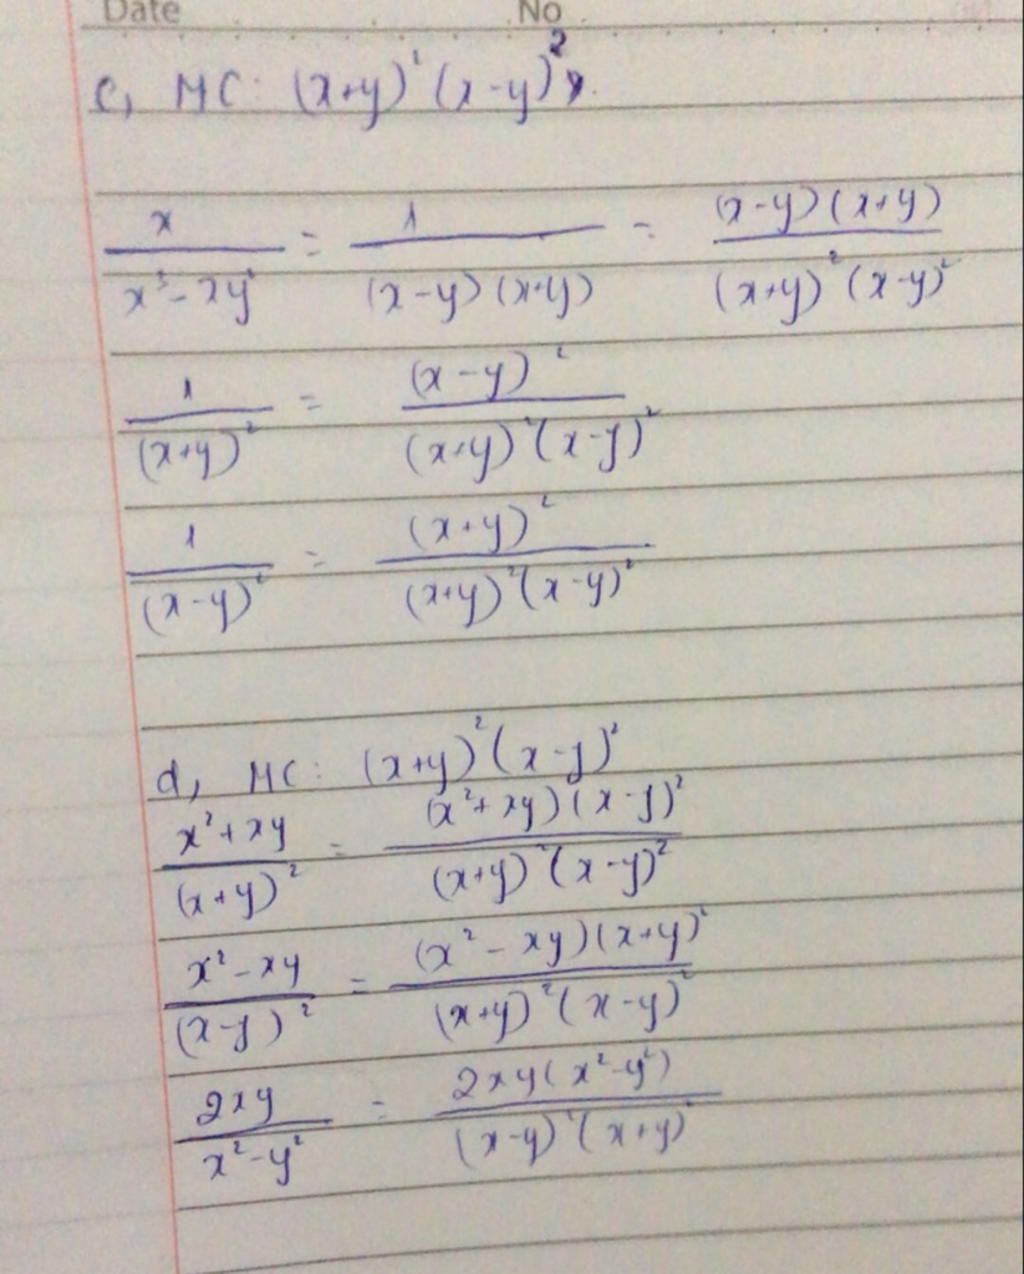 Date No
c, MC: (x+y)² (x-y)²
x / (x³ - xy²) = 1 / ((x-y)(x+y)) = ((x-y)(x+y)) / ((x+y)² (x-y)²)
1 / (x+y)² = (x-y)² / ((x+y)² (x-y)²)
1 / (x-y)² = (x+y)² / ((x+y)² (x-y)²)
d, MC: (x+y)² (x-y)²
(x² + xy) / (x+y)² = ((x² + xy)(x-y)²) / ((x+y)² (x-y)²)
(x² - xy) / (x-y)² = ((x² - xy)(x+y)²) / ((x+y)² (x-y)²)
2xy / (x² - y²) = 2xy(x² - y²) / ((x-y)² (x+y)²)